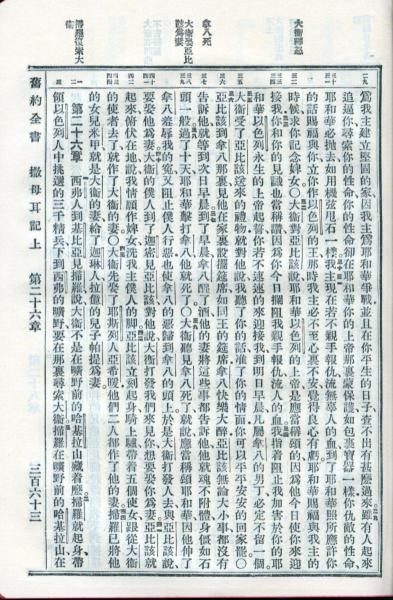 爲我主建立堅固的家因我主爲耶和華爭戰並且在你平生的日子查不出有甚麼過來雖有人起來
追逼你尋索你的性命你的性命卻在耶和華你的上帝那裏蒙保護如包裹寶器一樣你仇敵的性命
耶和華必拋去如用機弦甩石一樣我主現在若不親手報仇流無辜人的血到了耶和華照所應許你
的話賜福與你立你作以色列的王那時我主必不至心裏不安覺得良心有虧耶和華賜福與我主的
時候求你記念婢女〇大衛對亞比該說耶和華以色列的上帝是應當稱頌的因爲他今日使你來迎
接我你和你的見識也當稱讚因爲你今日攔阻我親手報仇流人的血我指着阻止我加害於你的耶
和華以色列永生的上帝起誓你若不速速的來迎接我到明日早晨凡屬拿八的男丁必定不留一個
大衛受了亞比該送來的禮物就對他說我聽了你的話准了你的情面你可以平平安安的回家罷〇
亞比該到拿八那裏見他在家裏設擺筵席如同王的筵席拿八快樂大醉亞比該無論大小事都沒有
告訴他就等到次日早晨到了早晨拿八醒了酒他的妻將這些事都告訴他他就魂不附體身僵如石
頭一般過了十天耶和華擊打拿八他就死了〇大衛聽見拿八死了就說應當稱頌耶和華因他伸了
拿八羞辱我的寃又阻止僕人行惡也使拿八的惡歸到拿八的頭上於是大衛打發人去與亞比該說
要娶他爲妻大衛的僕人到了迦密見亞比該對他說大衛打發我們來見你想要娶你爲妻亞比該就
起來俯伏在地說我情願作婢女洗我主僕人的脚亞比該立刻起身騎上驢帶着五個使女跟從大衛
的使者去了就作了大衛的妻〇大衛先娶了耶斯列人亞希暖他們二人都作了他的妻掃羅已將他
的女兒米甲就是大衛的妻給了迦琳人拉億的兒子帕提爲妻
第二十六章
西弗人到基比亞見掃羅說大衛不是在曠野前的哈基拉山藏着麼掃羅就起身帶
領以色列人中挑選的三千精兵下到西弗的曠野要在那裏尋索大衛掃羅在曠野前的哈基拉山在
舊約全書 撒母耳記上 第二十六章 三百六十三
拿八死
大衛娶亞比該爲妻